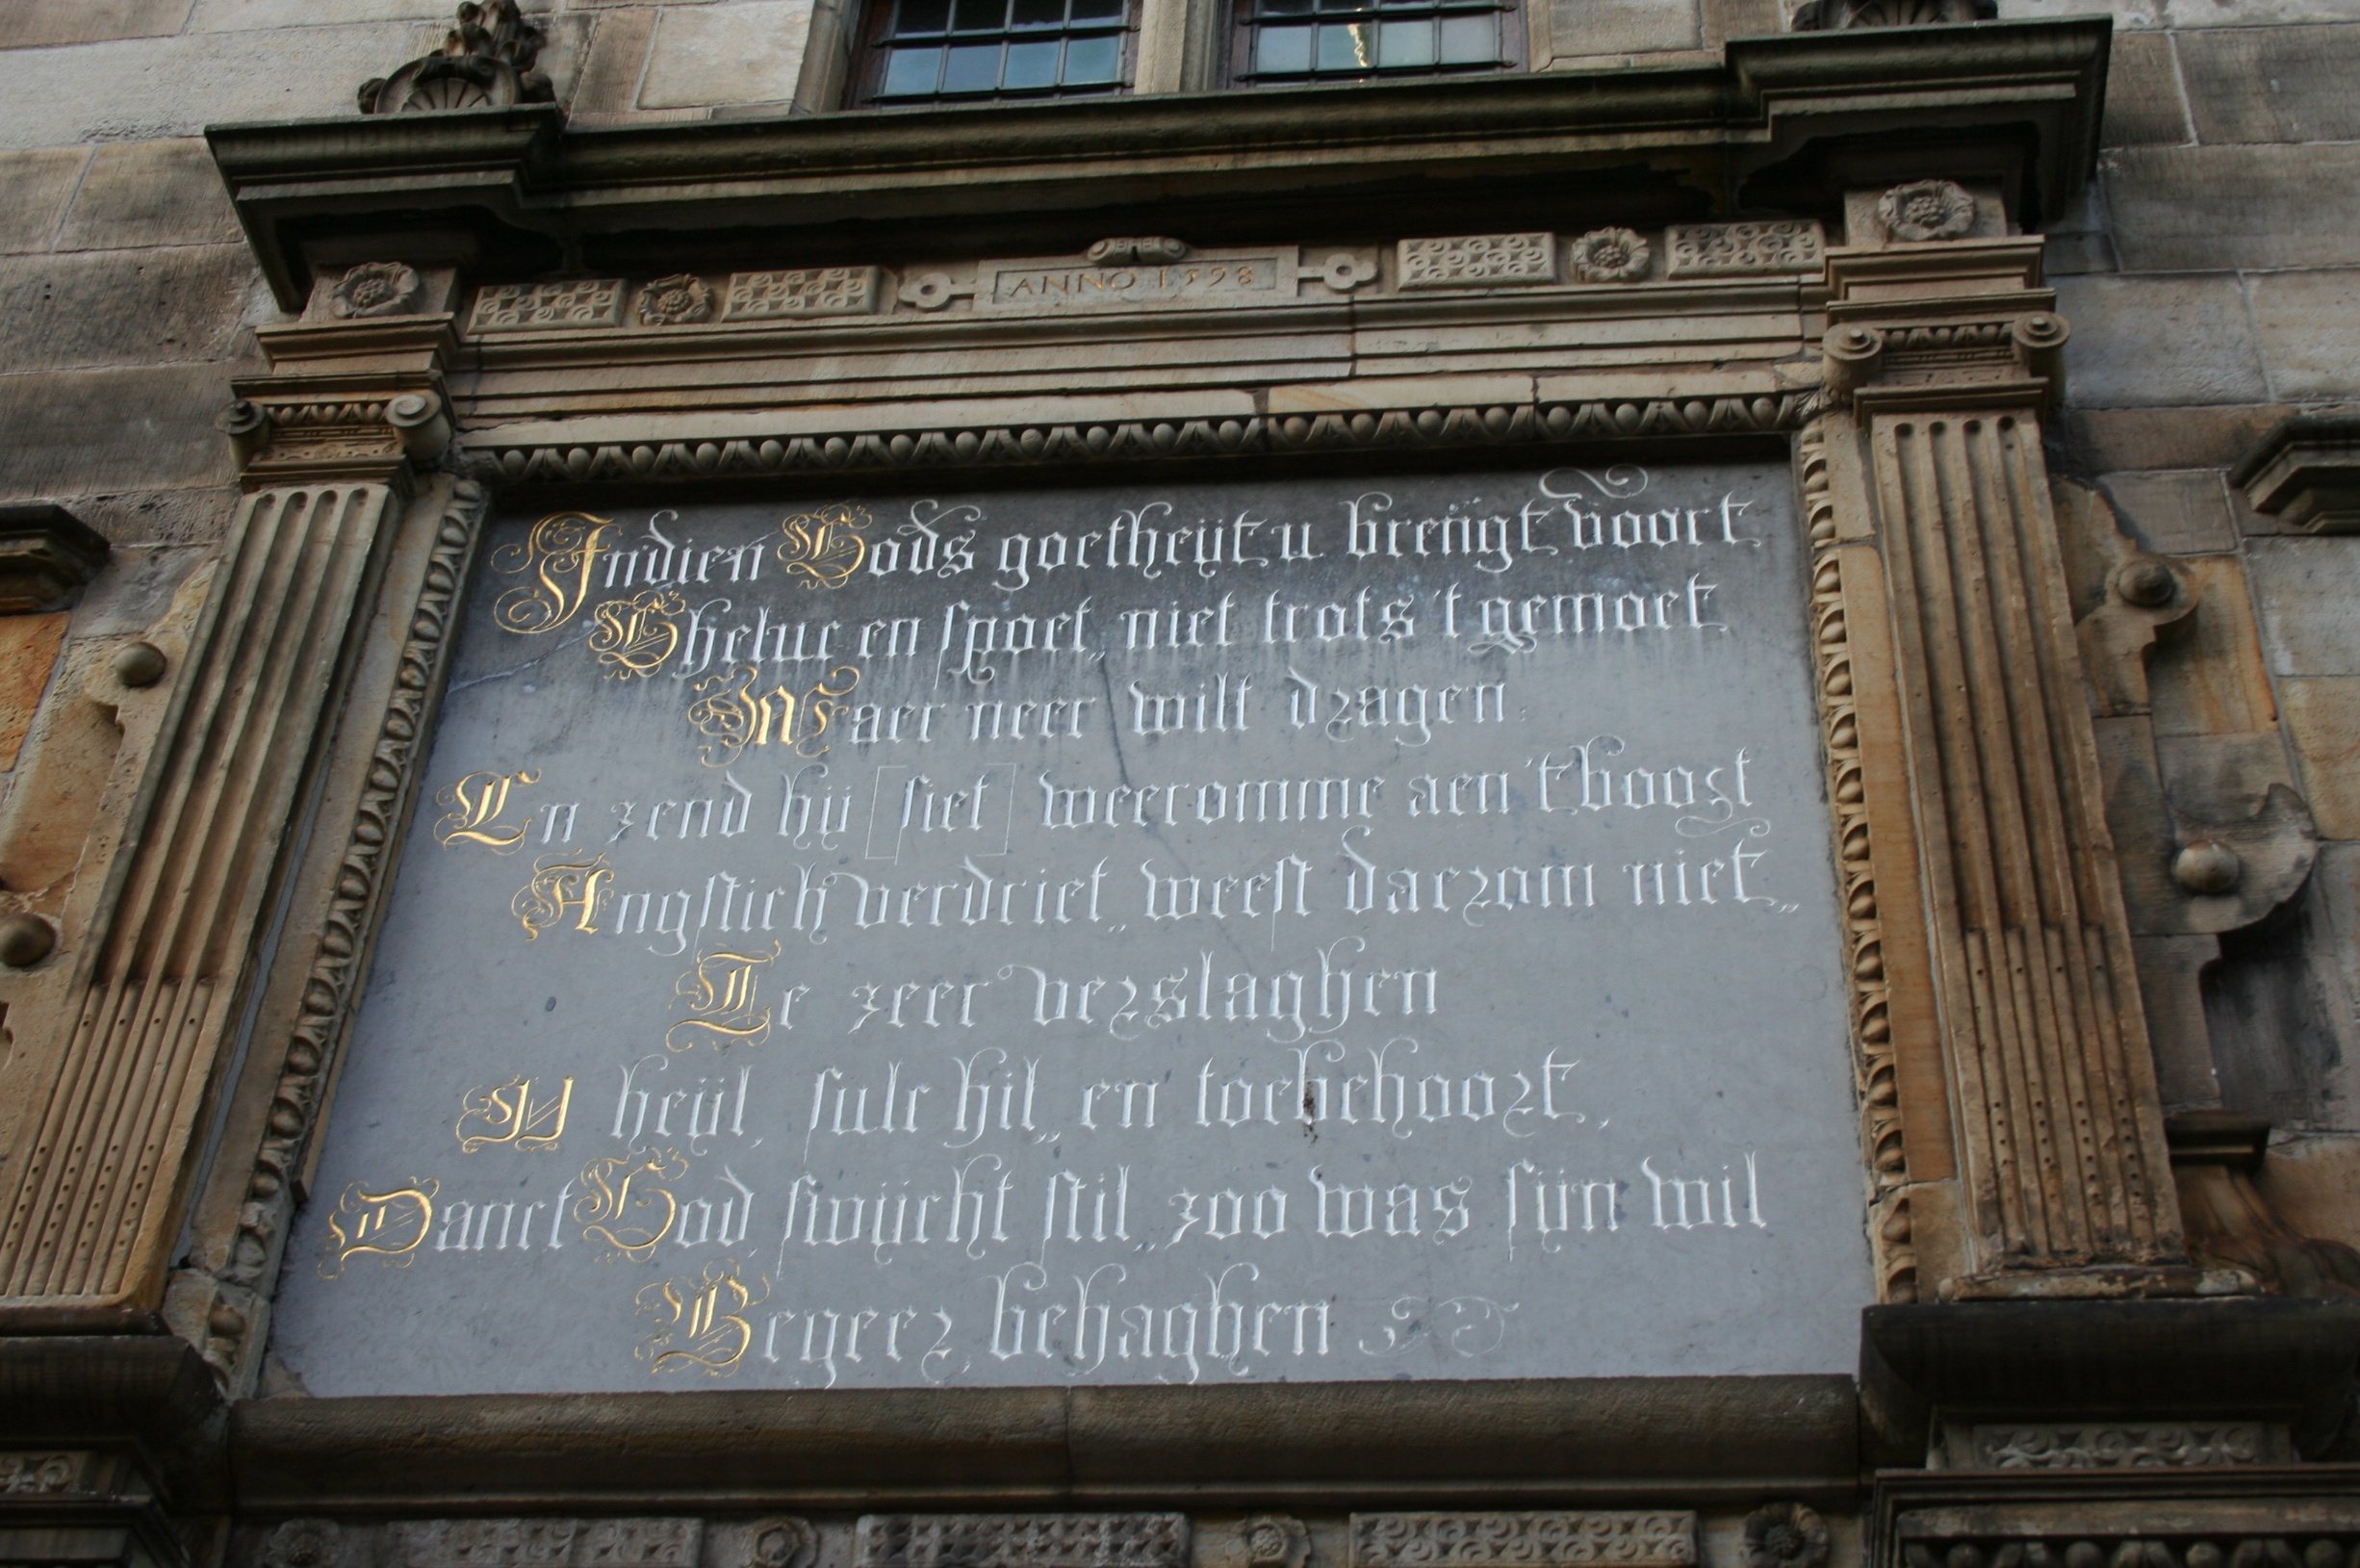 ANNO 1598
Indien Gods goetheÿt u brengt voort
Gheluc en spoet,, niet trots 't gemoet
Waer neer wilt dragen:
En zend hÿ [siet] weeromme aen 't boort
Angstich verdriet,, weest daerom niet,,
Te zeer verslaghen
U heÿl, sulc hil,, en toebehoort,
Danct God, swÿcht stil,, zoo was sÿn wil
Begeer, behaghen